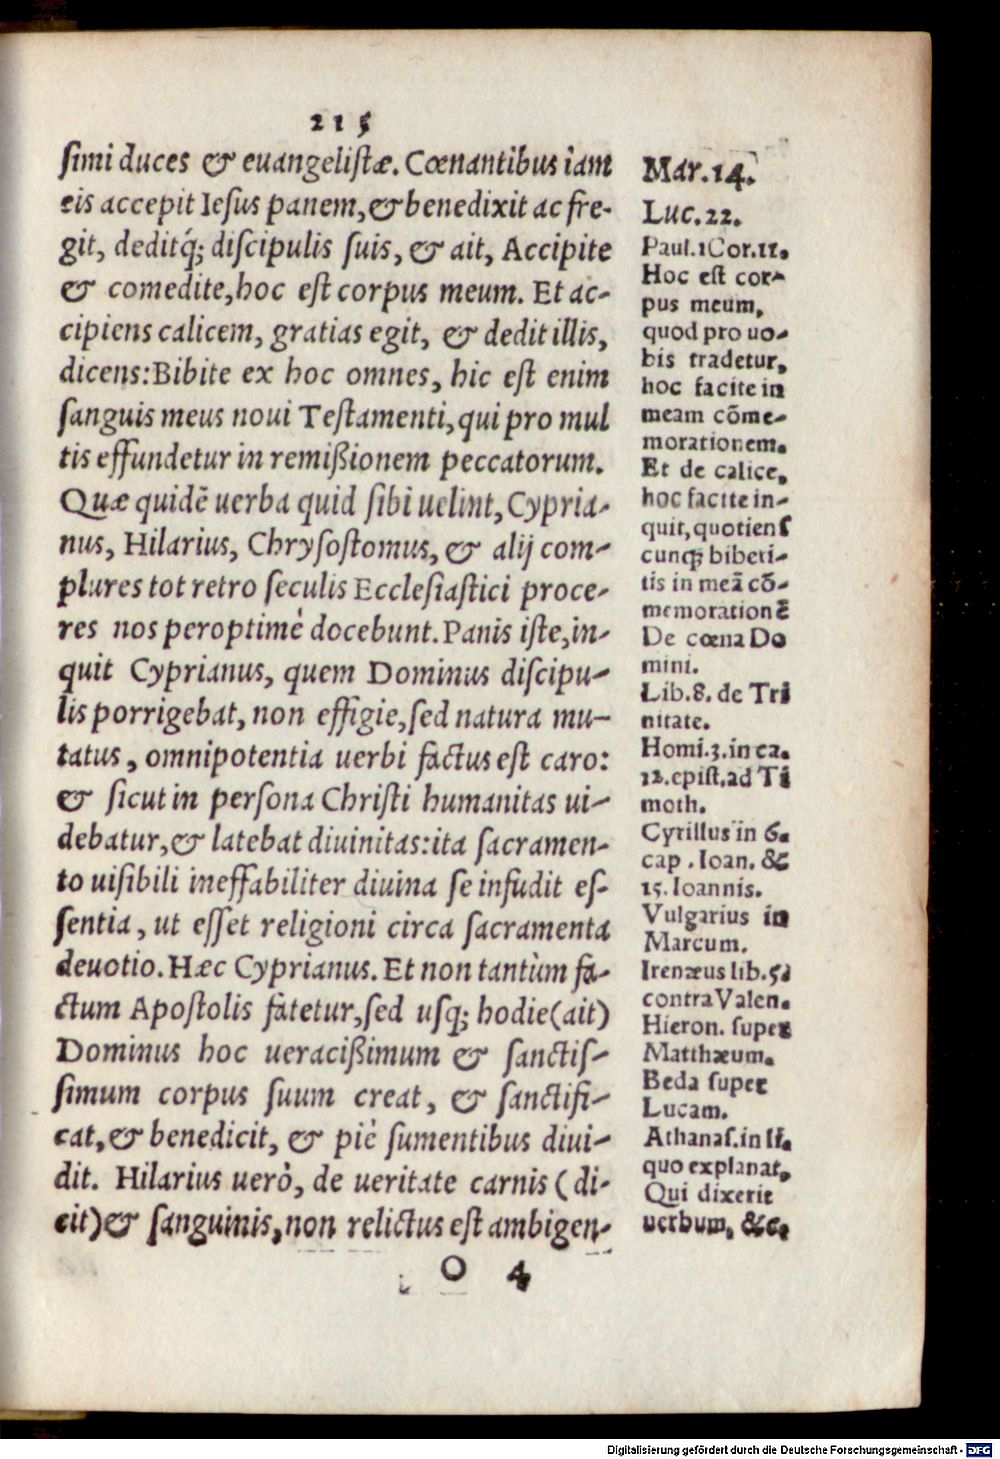 215
ſimi duces & euangeliſtæ. Cœnantibus iam
eis accepit Ieſus panem, & benedixit ac fre-
git, deditq́; diſcipulis ſuis, & ait, Accipite
& comedite, hoc eſt corpus meum. Et ac-
cipiens calicem, gratias egit, & dedit illis,
dicens: Bibite ex hoc omnes, hic eſt enim
ſanguis meus noui Teſtamenti, qui pro mul
tis effundetur in remißionem peccatorum.
Quæ quidē uerba quid ſibi uelint, Cypria-
nus, Hilarius, Chryſoſtomus, & alij com-
plures tot retro ſeculis Eccleſiaſtici proce-
res nos peroptimè docebunt. Panis iſte, in-
quit Cyprianus, quem Dominus diſcipu-
lis porrigebat, non effigie, ſed natura mu-
tatus, omnipotentia uerbi factus eſt caro:
& ſicut in perſona Chriſti humanitas ui-
debatur, & latebat diuinitas: ita ſacramen-
to uiſibili ineffabiliter diuina ſe infudit eſ-
ſentia, ut eſſet religioni circa ſacramenta
deuotio. Hæc Cyprianus. Et non tantùm fa-
ctum Apoſtolis fatetur, ſed uſq; hodie (ait)
Dominus hoc ueracißimum & ſanctiſ-
ſimum corpus ſuum creat, & ſanctifi-
cat, & benedicit, & piè ſumentibus diui-
dit. Hilarius uerò, de ueritate carnis (di-
cit) & ſanguinis, non relictus eſt ambigen-
O 4
Mar. 14.
Luc. 22.
Paul. 1 Cor. 11.
Hoc eſt cor-
pus meum,
quod pro uo-
bis tradetur,
hoc facite in
meam cōme-
morationem.
Et de calice,
hoc facite in-
quit, quotienſ
cunq; biberi-
tis in meā cō-
memorationē
De cœna Do
mini.
Lib. 8. de Tri
nitate.
Homi. 3. in ca.
12. epiſt. ad Ti
moth.
Cyrillus in 6.
cap. Ioan. &
15. Ioannis.
Vulgarius in
Marcum.
Irenæus lib. 5.
contra Valen.
Hieron. ſuper
Matthæum.
Beda ſuper
Lucam.
Athanaſ. in li.
quo explanat,
Qui dixerit
uerbum, &c.
Digitalisierung gefördert durch die Deutsche Forschungsgemeinschaft - DFG